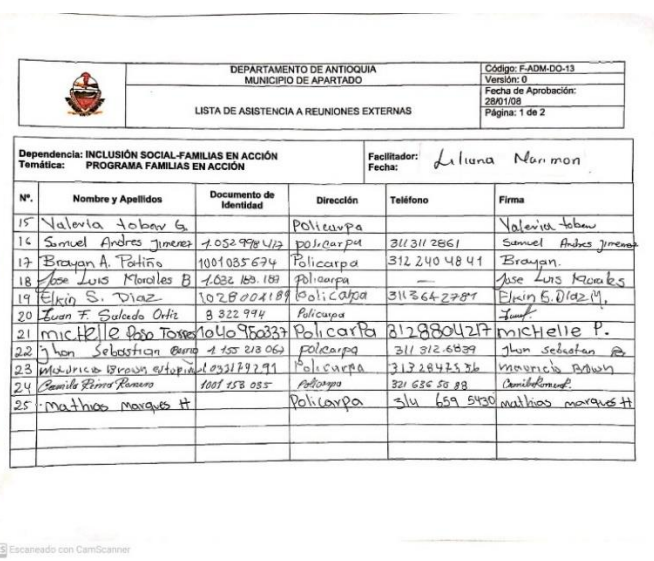 DEPARTAMENTO DE ANTIOQUIA
MUNICIPIO DE APARTADO
LISTA DE ASISTENCIA A REUNIONES EXTERNAS
Código: F-ADM-DO-13
Versión: 0
Fecha de Aprobación:
28/01/08
Página: 1 de 2
Dependencia: INCLUSIÓN SOCIAL-FAMILIAS EN ACCIÓN
Temática: PROGRAMA FAMILIAS EN ACCIÓN
Facilitador: Liliana Marimon
Fecha:
Nº. Nombre y Apellidos Documento de Identidad Dirección Teléfono Firma
15 Valeria tobon G. Policarpa Valeria tobon
16 Samuel Andres Jimenez 1.052998417 policarpa 3113112861 Samuel Andres Jimenez
17 Brayan A. Patiño 1001035674 Policarpa 312 240 48 41 Brayan.
18 Jose Luis Morales B Policarpa — Jose Luis Morales
19 Elkin S. Diaz 1028004189 Policarpa 3113642781 Elkin S. Diaz M.
20 Juan F. Salcedo Ortiz 8 322 994 Policarpa
21 michelle Poso Torres 1040950337 Policarpa 3128804217 michelle P.
22 Jhon Sebastian 1 155 213 067 policarpa 311 312 6839 Jhon sebastian B
23 Mauricio Brown 1033179291 Policarpa 3132847536 mauricio Brown
24 Camilo Romero 1001 153 035 Policarpa 321 636 50 88
25 mathias marques H Policarpa 314 659 5430 mathias marques H
Escaneado con CamScanner